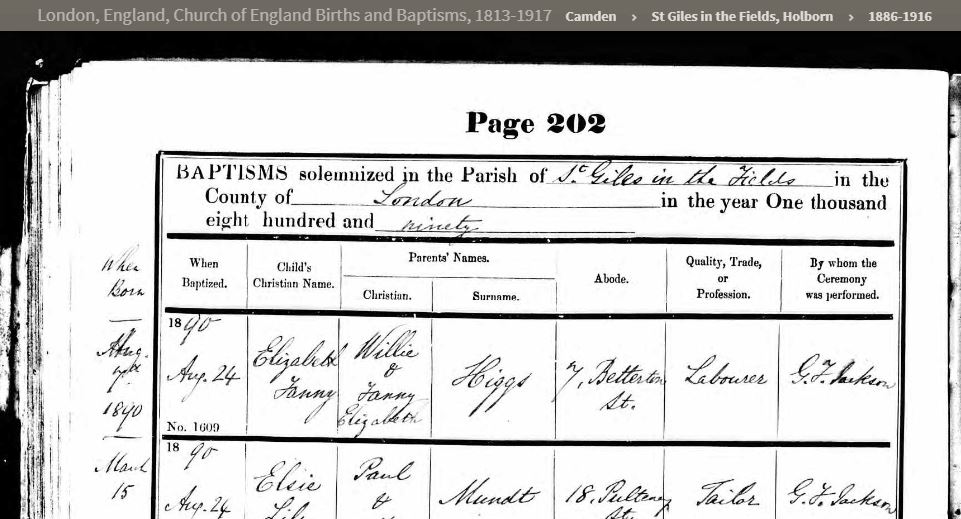 London, England, Church of England Births and Baptisms, 1813-1917 Camden › St Giles in the Fields, Holborn › 1886-1916
Page 202
BAPTISMS solemnized in the Parish of St. Giles in the Fields in the
County of London in the year One thousand
eight hundred and ninety
When
Born
When
Baptized.
Child's
Christian Name.
Parents' Names.
Christian.
Surname.
Abode.
Quality, Trade,
or
Profession.
By whom the
Ceremony
was performed.
Aug.
7th
1890
1890
Aug. 24
No. 1609
Elizabeth
Fanny
Willie
&
Fanny
Elizabeth
Higgs
7, Betterton
St.
Labourer
G. F. Jackson
March
15
1890
Aug. 24
Elsie
Paul
&
Mundt
18, Pulteney
Tailor
G. F. Jackson